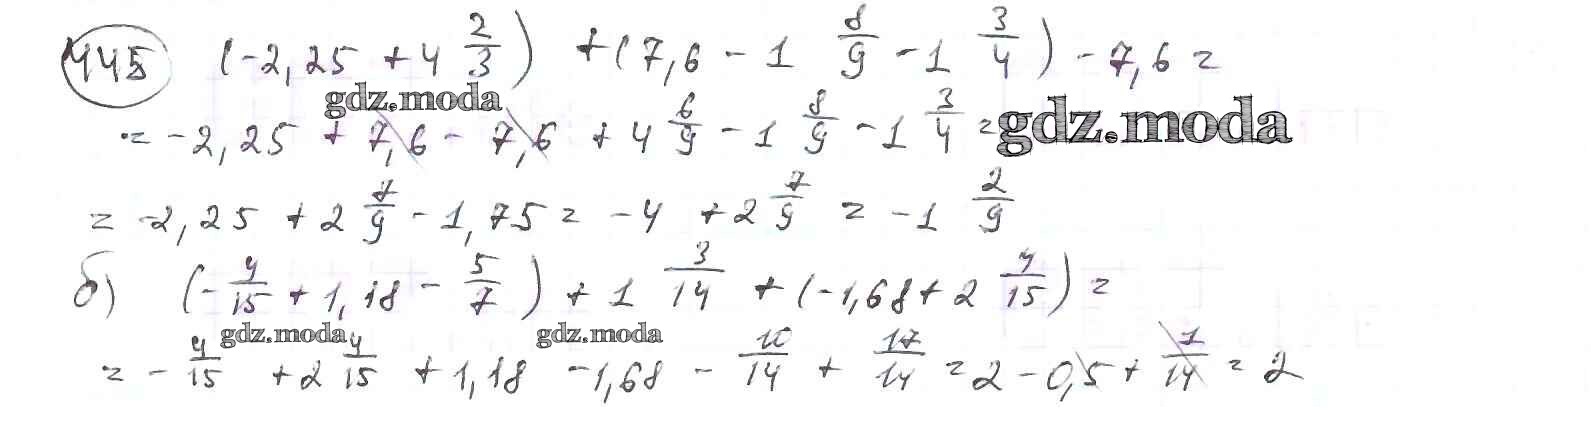 445 (-2,25 + 4 2/3) + (7,6 - 1 8/9 - 1 3/4) - 7,6 =
gdz.moda
= -2,25 + 7,6 - 7,6 + 4 6/9 - 1 8/9 - 1 3/4 = gdz.moda
= -2,25 + 2 7/9 - 1,75 = -4 + 2 7/9 = -1 2/9
б) (-4/15 + 1,18 - 5/7) + 1 3/14 + (-1,68 + 2 4/15) =
gdz.moda gdz.moda
= -4/15 + 2 4/15 + 1,18 - 1,68 - 10/14 + 17/14 = 2 - 0,5 + 7/14 = 2